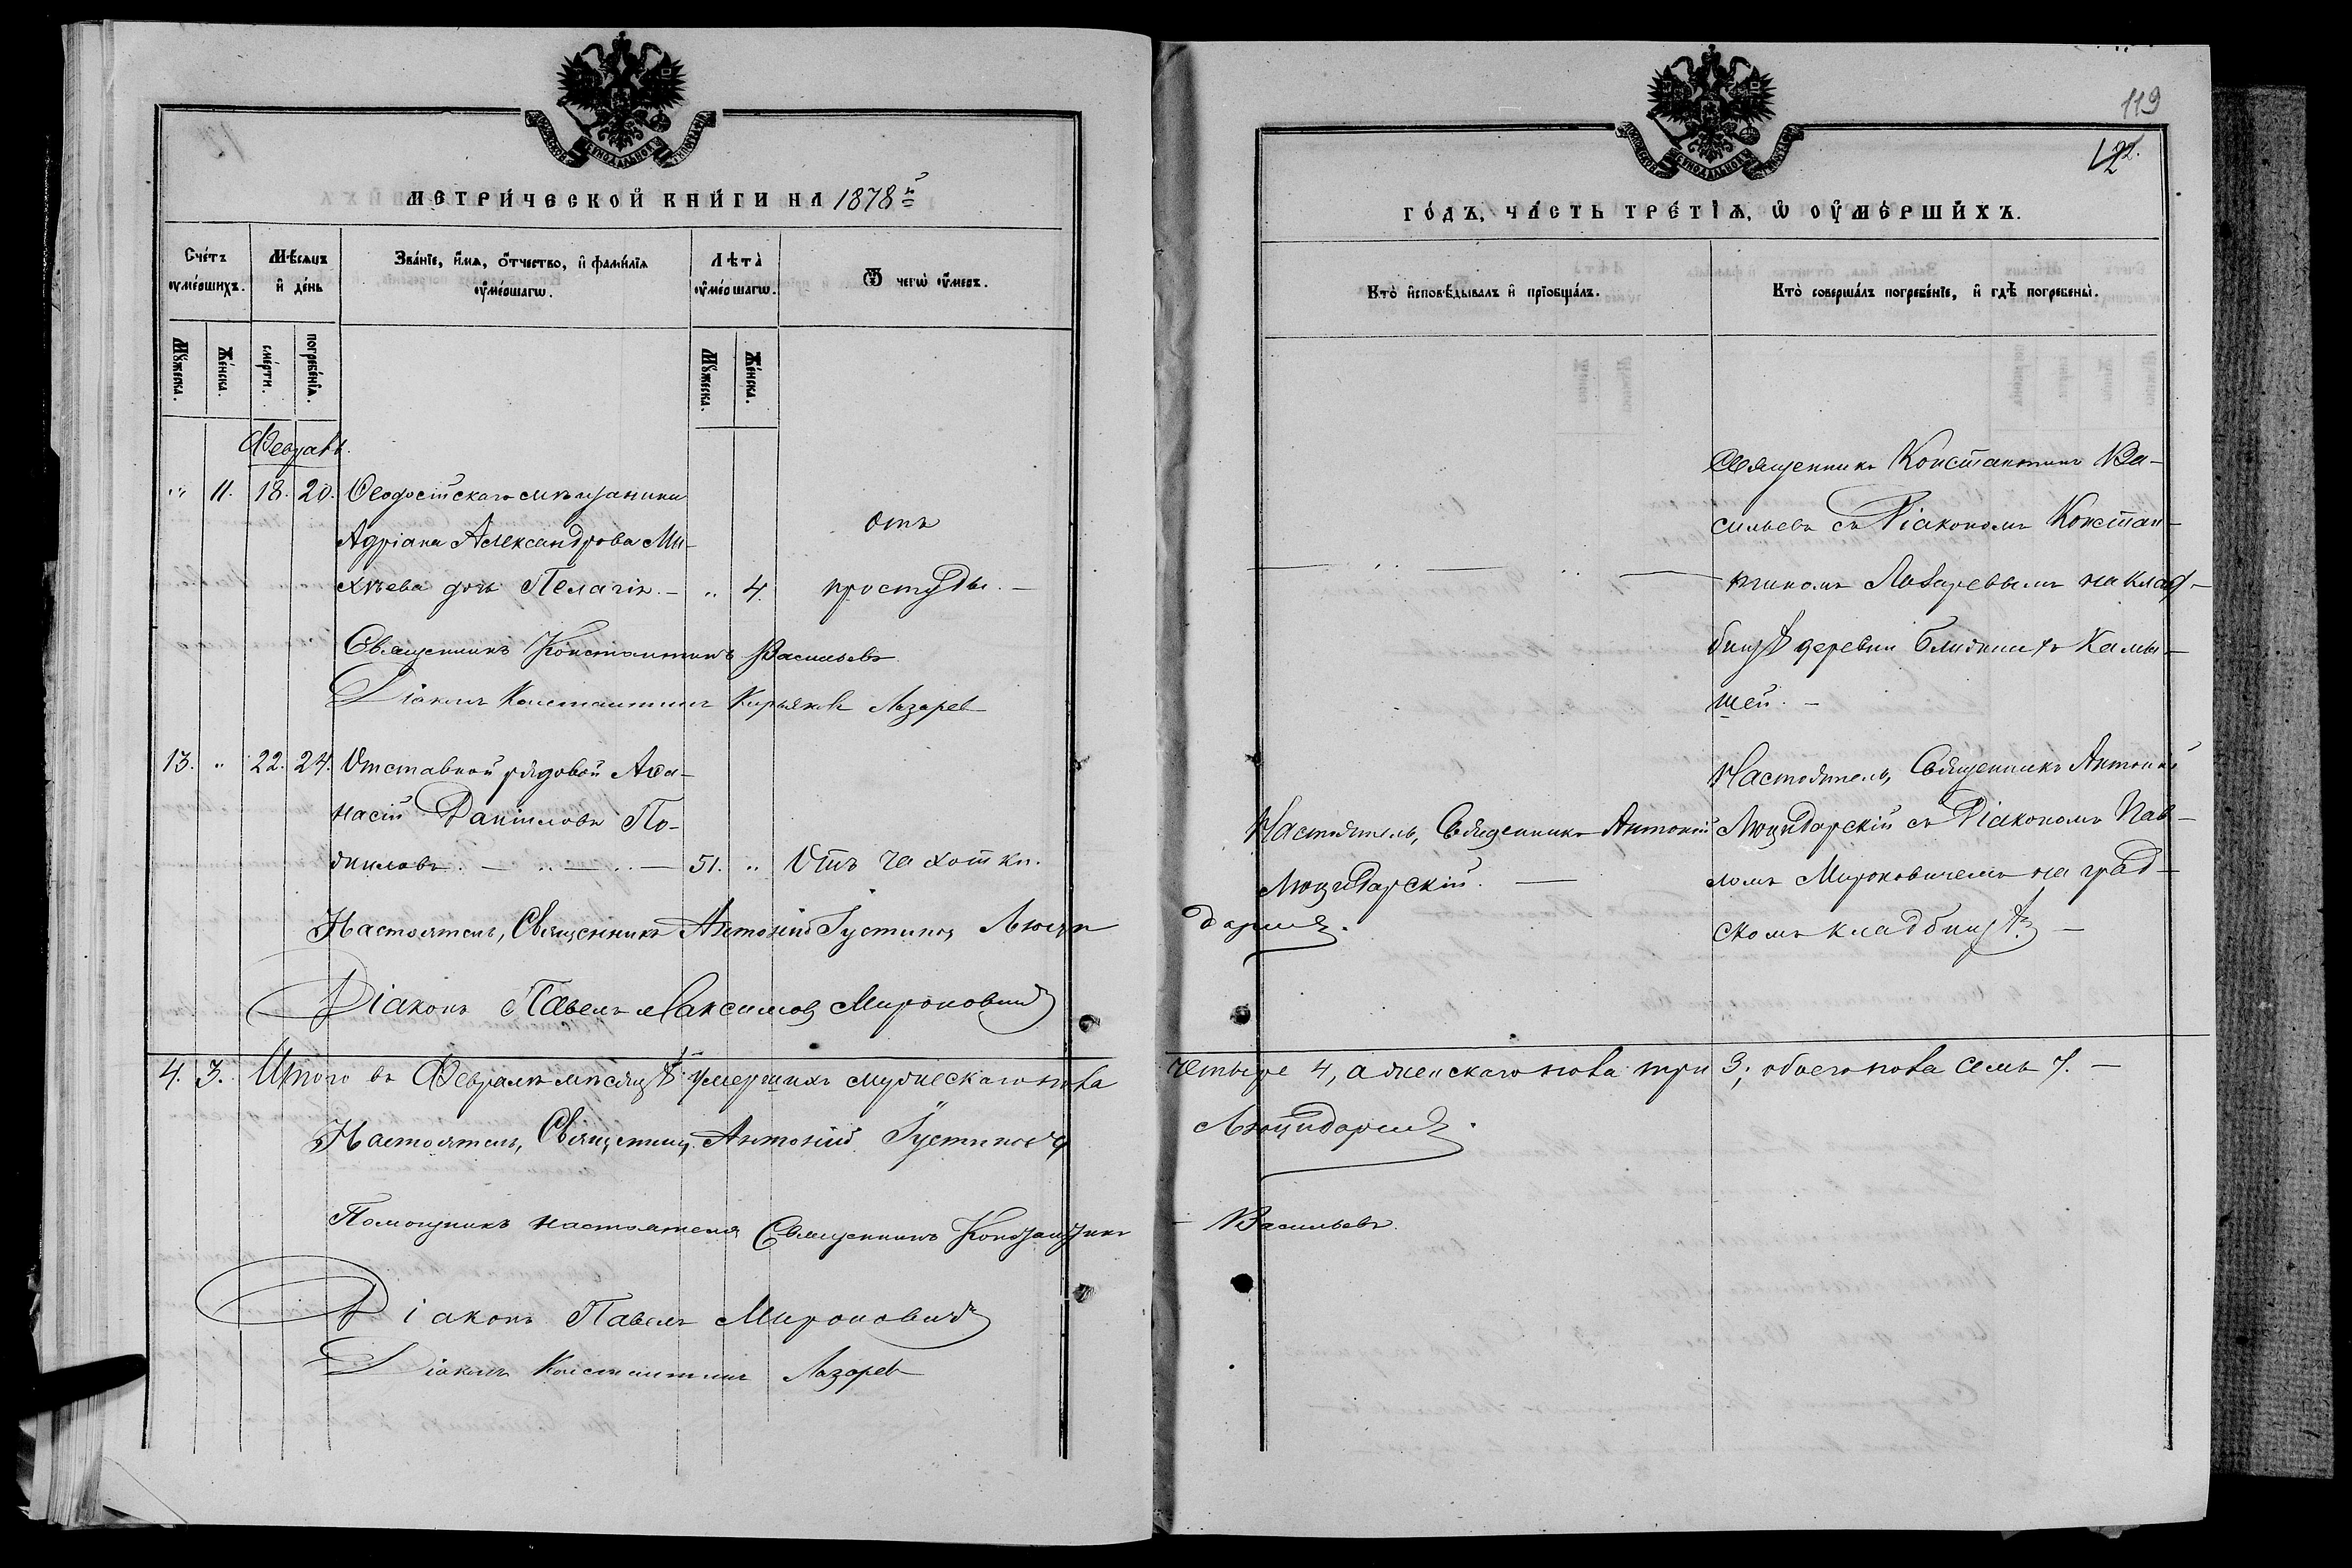 119
122.
МЕТРИЧЕСКОЙ КНИГИ НА 1878 й
ГОДЪ, ЧАСТЬ ТРЕТІЯ, Ѡ ОУМЕРШИХЪ.
Счетъ оумершихъ.
Мѣсяцъ и день
Званіе, имя, отчество, и фамилія оумершагѡ.
Лѣта оумершагѡ.
Ѿ чегѡ оумеръ.
Кто исповѣдывалъ и пріобщалъ.
Кто совершалъ погребеніе, и гдѣ погребены.
Мужеска.
Женска.
смерти.
погребенія.
Мужеска.
Женска.
Февраль.
" 11. 18. 20. Ѳеодосійскаго мѣщанина
Адріана Александрова Ми-
хѣева дочь Пелагія. — " 4. Отъ
простуды. —
Священникъ Константинъ Ва-
сильевъ съ Діакономъ Констан-
тиномъ Лазаревымъ на клад-
бищѣ деревни Ближнихъ Камы-
шей. —
Священникъ Константинъ Васильевъ
Діаконъ Константинъ Кирьяковъ Лазарев
13. " 22. 24. Отставной рядовой Аѳа-
насій Даніиловъ По-
51. " Отъ чахотки.
Настоятель, Священникъ Антоній
Люцидарскій. —
Настоятель, Священникъ Антоній
Люцидарскій съ Діакономъ Пав-
ломъ Мироновичемъ на град-
скомъ кладбищѣ. —
Настоятель, Священникъ Антоній Іустиновъ Люци
Діаконъ Павелъ Максимовъ Мироновичъ
4. 3. Итого въ Февралѣ мѣсяцѣ умершихъ мужескаго пола четыре 4, а женскаго пола три 3; обоего пола семь 7. —
Настоятель, Священникъ Антоній Іустиновъ Люцидарскій.
Помощникъ настоятеля Священникъ Константинъ Васильевъ.
Діаконъ Павелъ Мироновичъ
Діаконъ Константинъ Лазарев